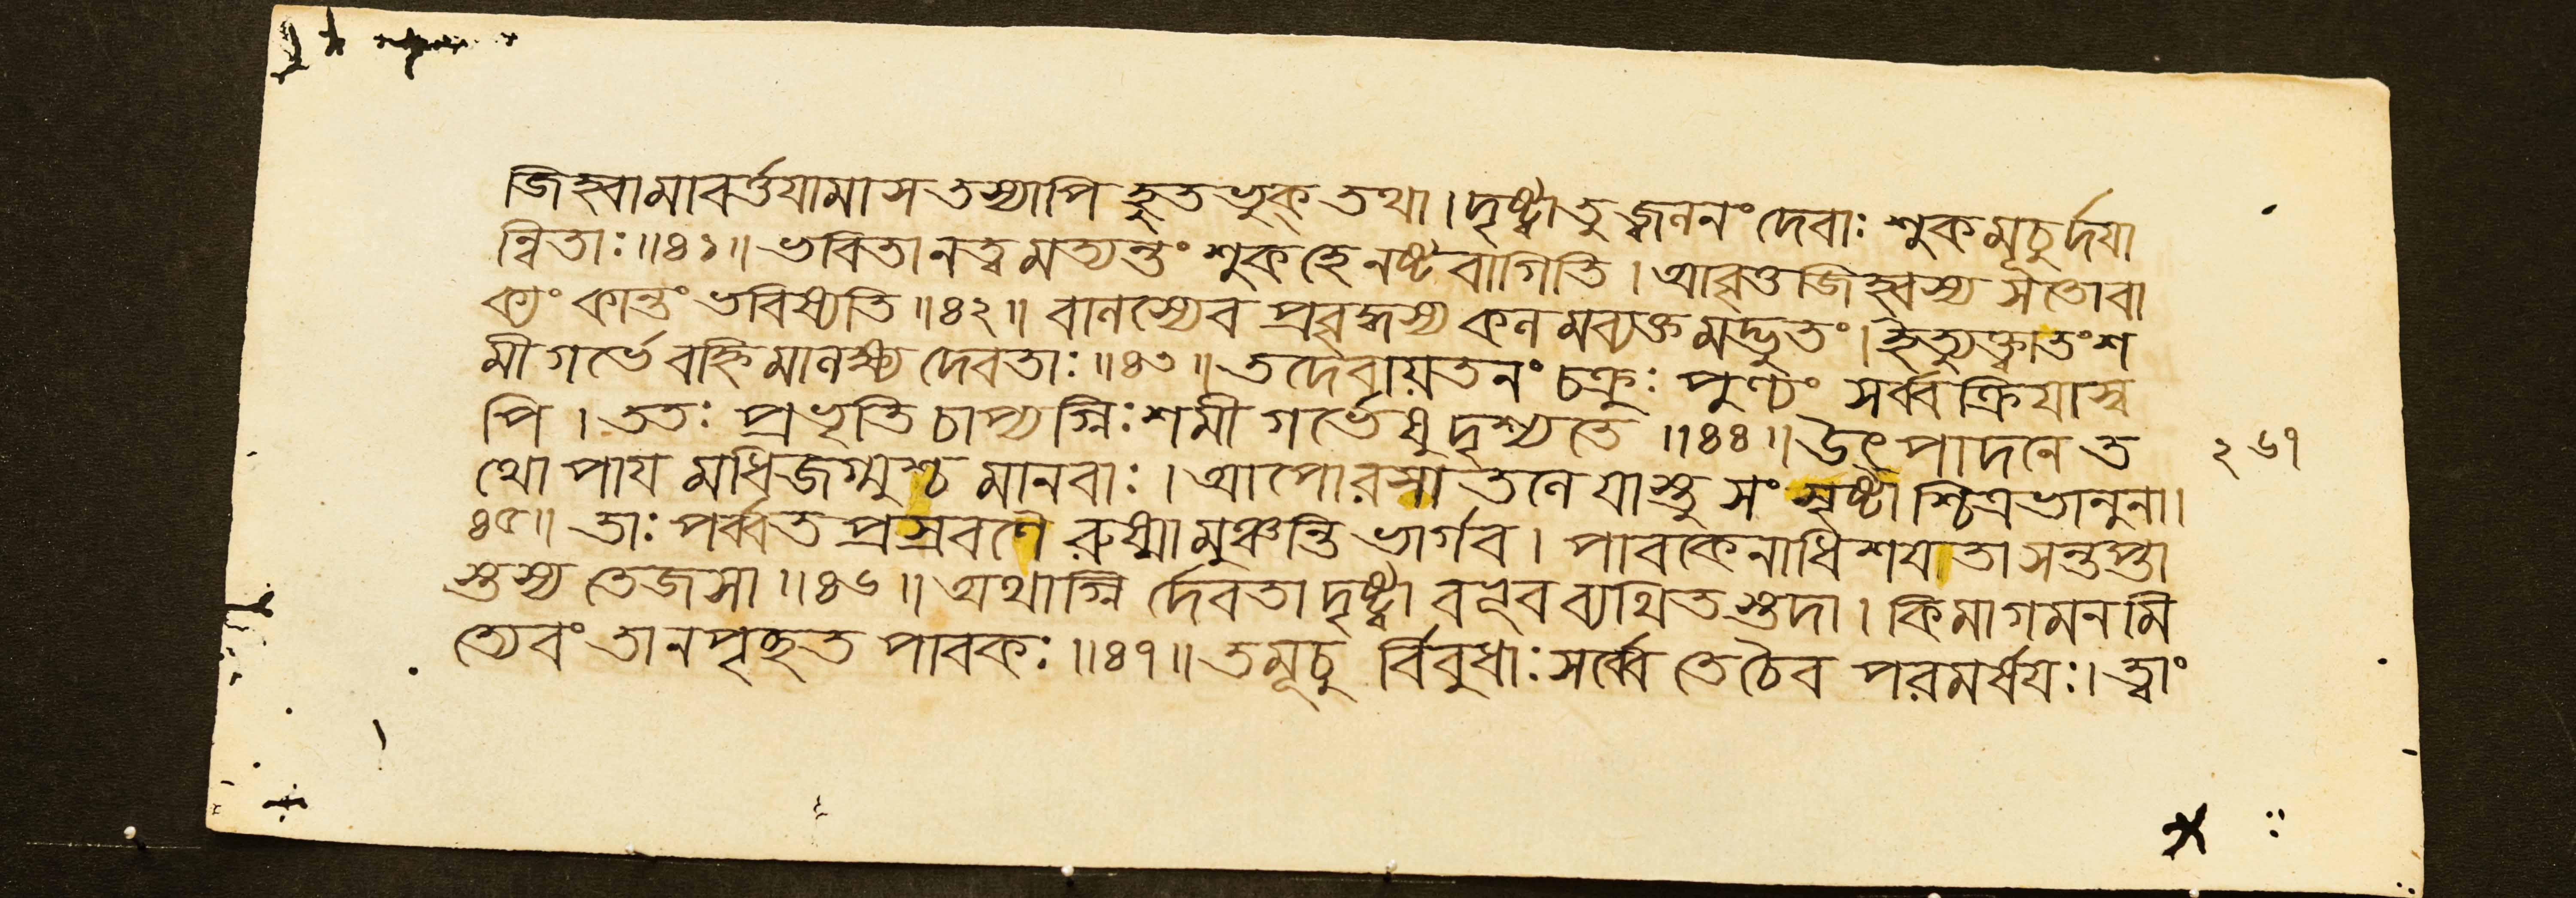 জিহ্বামাবর্ত্তযামাস তস্যাপি হুতভুক্ তথা। দৃষ্ট্বা তু জ্বলনং দেবাঃ শুকমূচুর্দযা
ন্বিতাঃ॥৪১॥ ভবিতা নত্বমত্যন্তং শুকত্বে নষ্টবাগিতি। আবৃত্তজিহ্বস্য সতো বা
ক্যং কান্তং ভবিষ্যতি॥৪২॥ বালস্যেব প্রবৃদ্ধস্য কলমব্যক্তমদ্ভুতং। ইত্যুক্ত্বা তং শ
মী গর্ভে বহ্নিমালক্ষ্য দেবতাঃ॥৪৩॥ তদেবায়তনং চক্রুঃ পুণ্যং সর্ব্বক্রিযাস্ব
পি। ততঃ প্রভৃতি চাপ্যগ্নিঃ শমী গর্ভেষু দৃশ্যতে॥৪৪॥ উৎপাদনে ত
থোপায মধিজগ্মুশ্চ মানবাঃ। আপো রসাতলে যাস্তু সংসৃষ্টাশ্চিত্রভানুনা।
৪৫॥ তাঃ পর্ব্বত প্রস্রবণৈ রুষ্মা মুঞ্চন্তি ভার্গব। পাবকেনাধিশযতা সন্তপ্তা
স্তস্য তেজসা॥৪৬॥ অথাগ্নি র্দেবতা দৃষ্ট্বা বভূব ব্যথিতস্তদা। কিমাগমনমি
ত্যেবং তানপৃচ্ছত পাবকঃ॥৪৭॥ তমূচু র্বিবুধাঃ সর্ব্বে তে চৈব পরমর্ষযঃ। ত্বাং
২৬৭